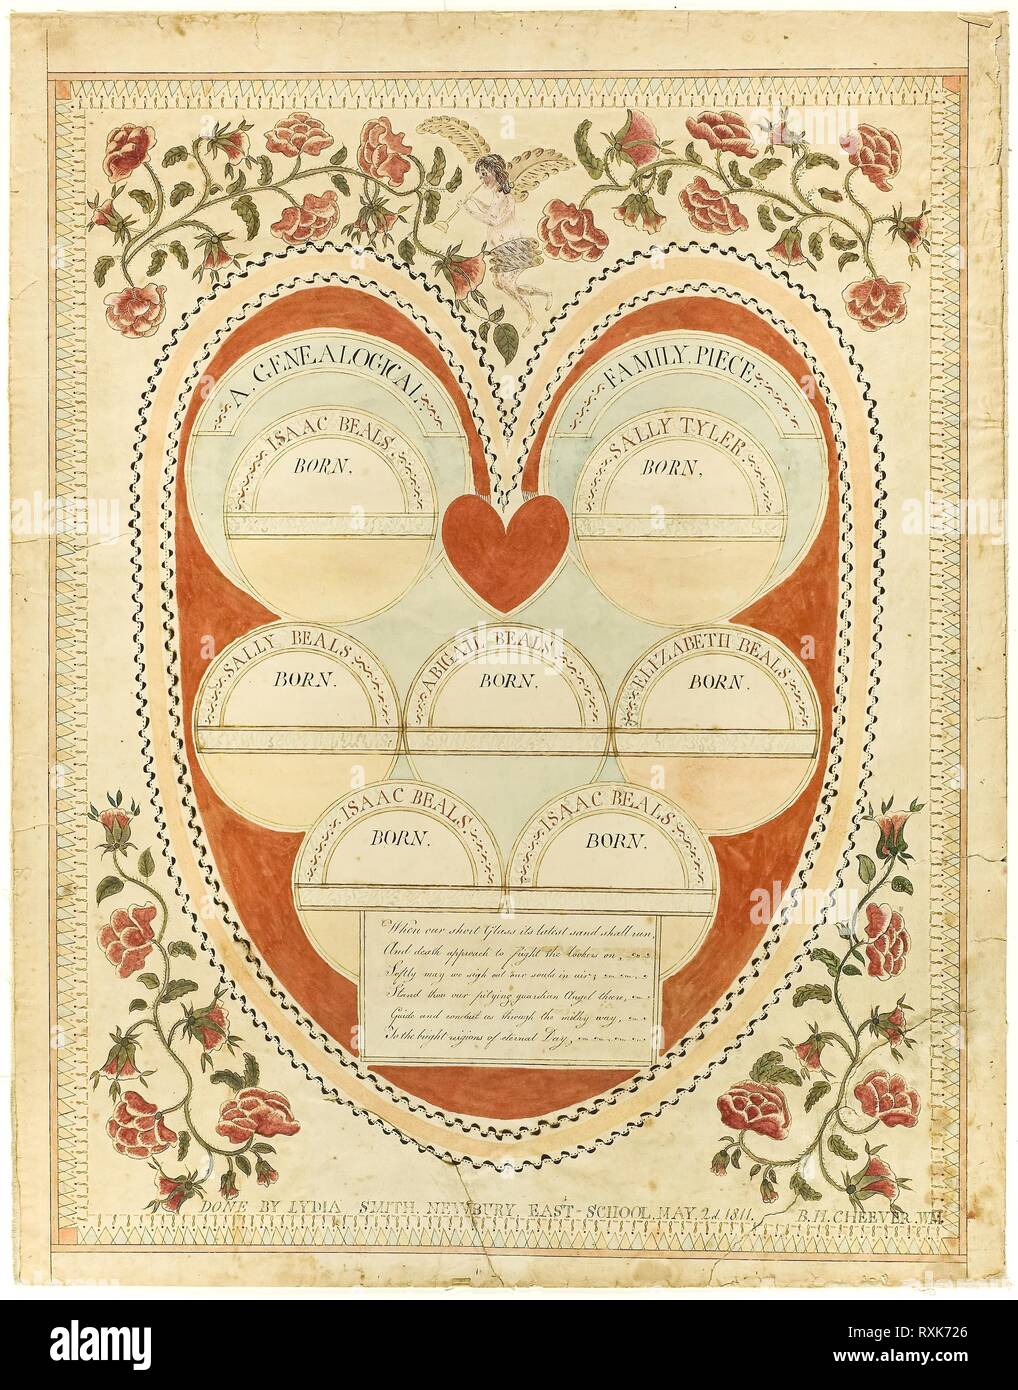 A. GENEALOGICAL.
FAMILY. PIECE
ISAAC BEALS.
BORN.
SALLY TYLER.
BORN.
SALLY BEALS
BORN.
ABIGAIL BEALS.
BORN.
ELIZABETH BEALS.
BORN.
ISAAC BEALS.
BORN.
ISAAC BEALS.
BORN.
When our short Glass its latest sand shall run,
And death approach to fright the lookers on,
Softly may we sigh out our souls in air,
Stand thou our pitying guardian Angel there,
Guide and conduct us through the milky way,
To the bright regions of eternal Day,
DONE BY LYDIA SMITH. NEWBURY EAST-SCHOOL, MAY, 2d 1811. B. H. CHEEVER
alamy
Image ID: RXK726
www.alamy.com